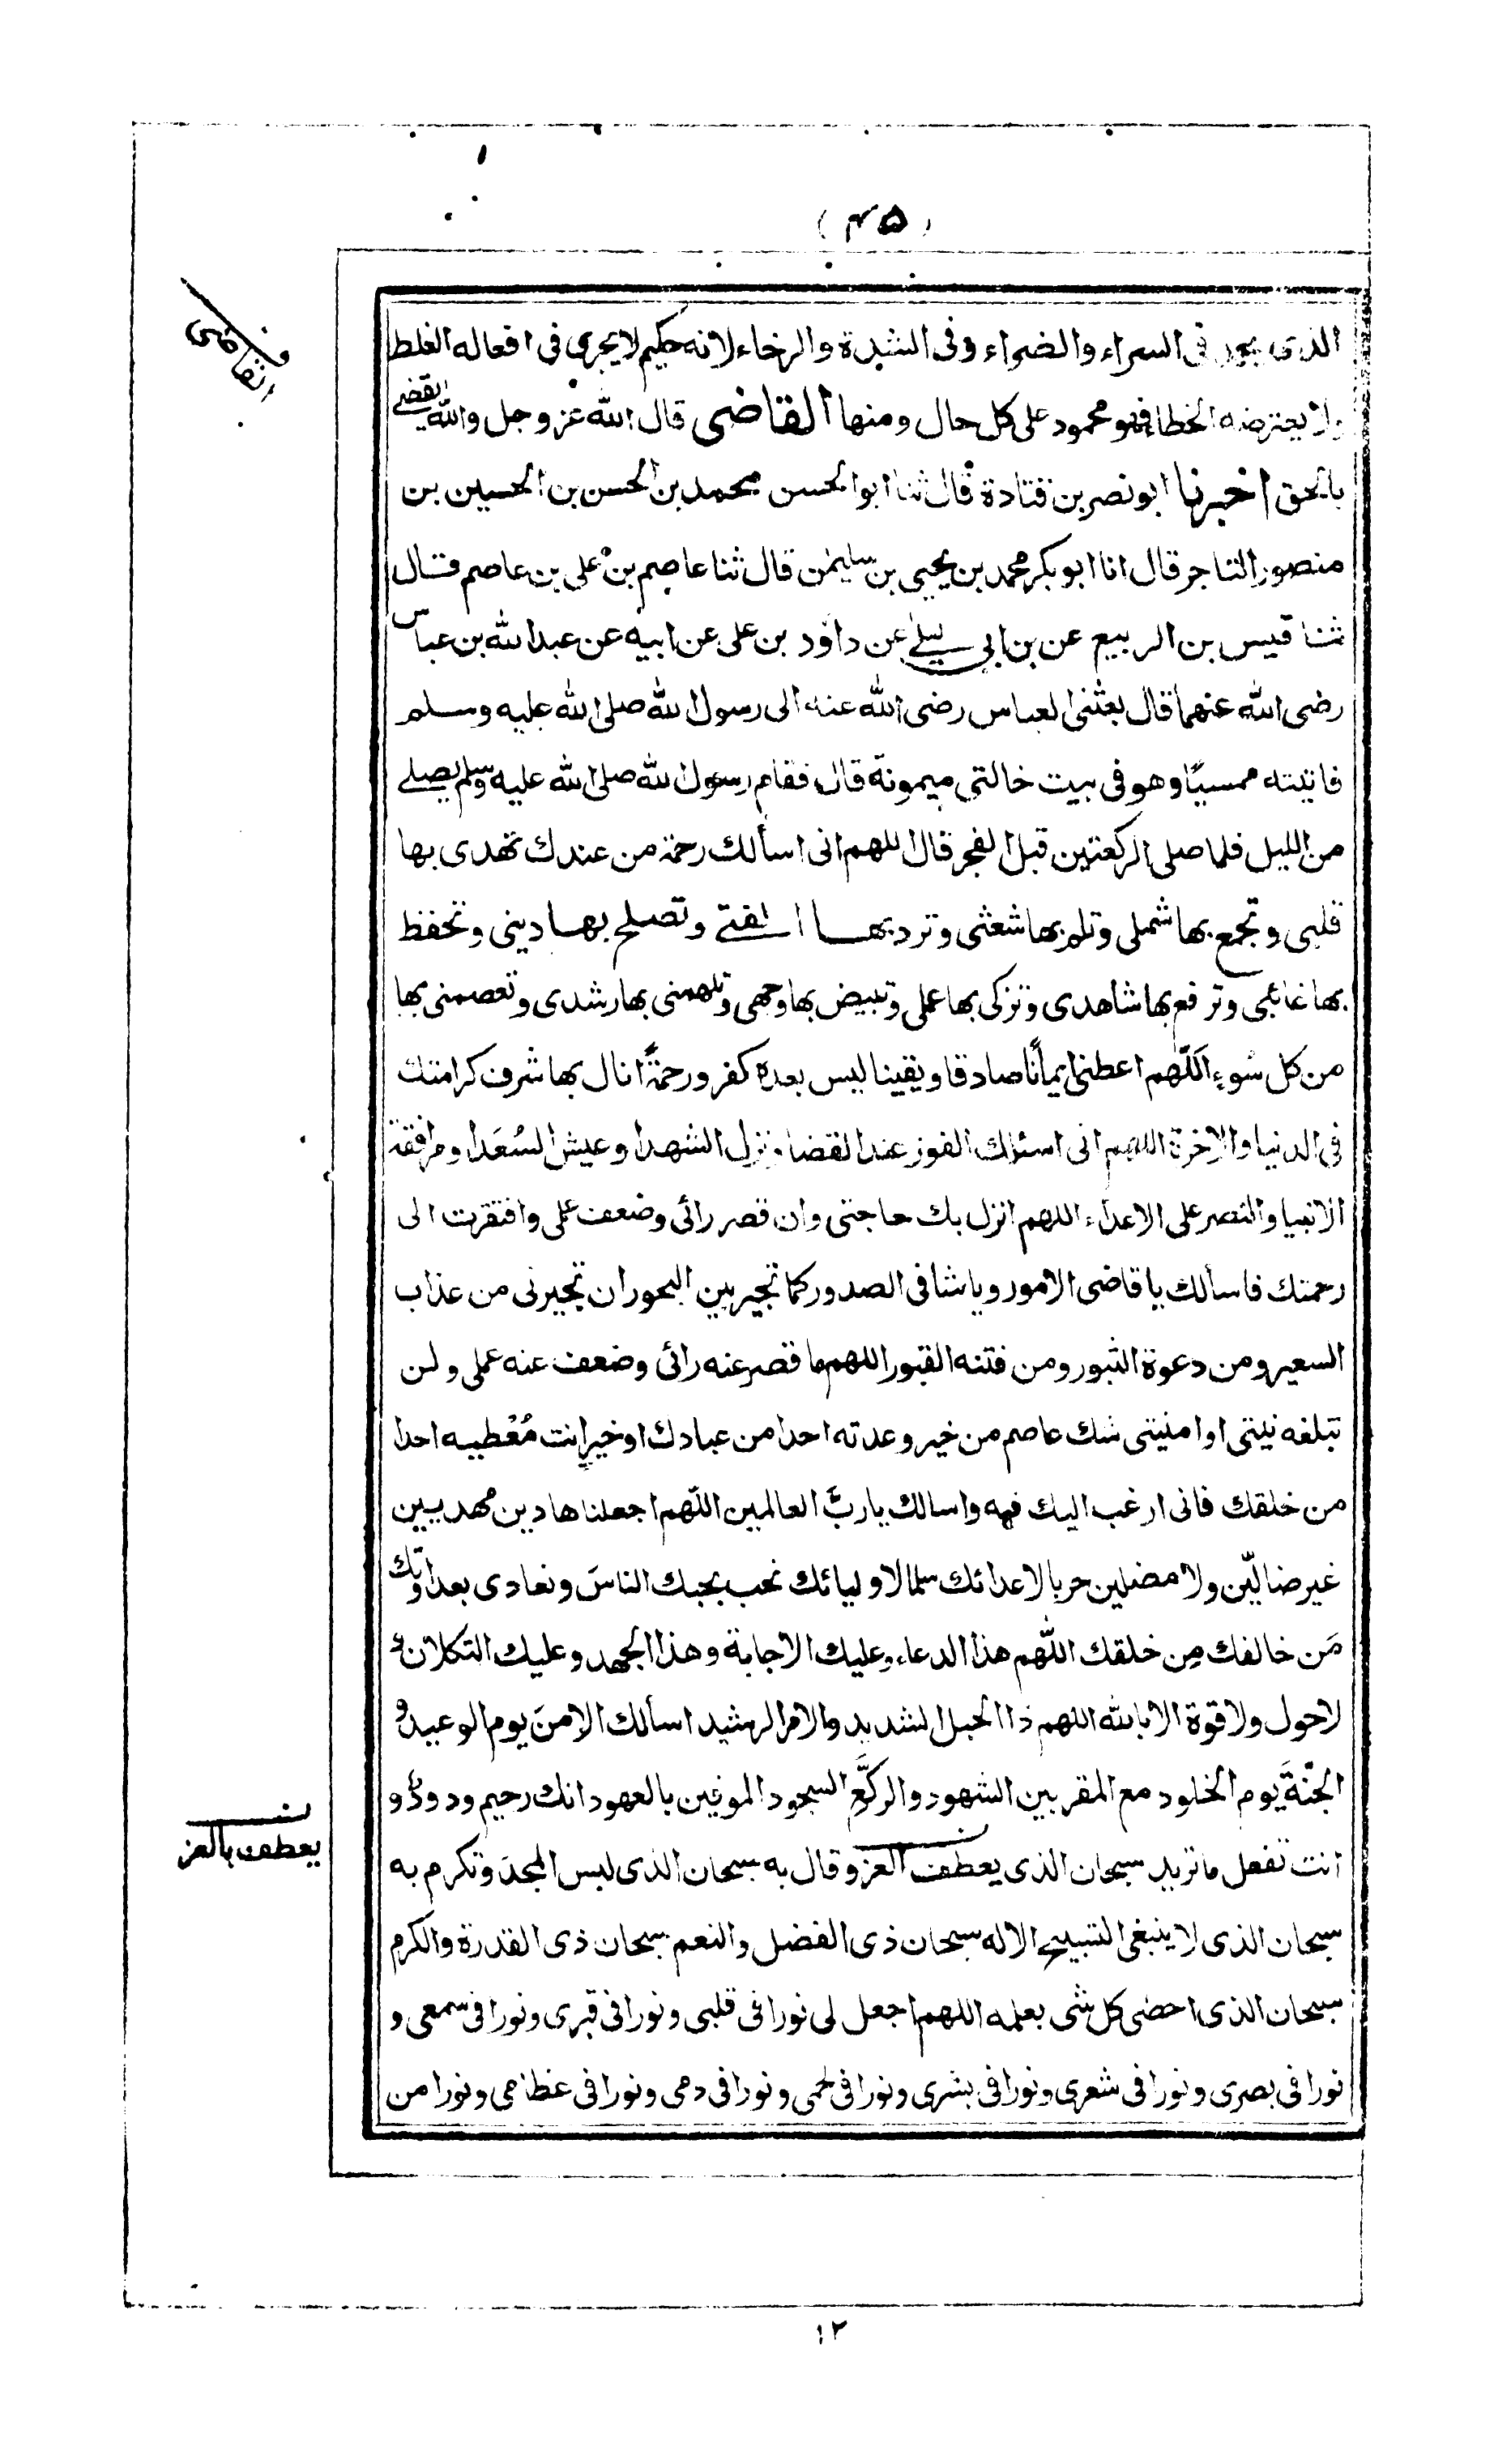 (۴۵)
القاضی
الذی یحمد فی السراء والضراء وفی الشدة والرخاء لانه حکیم لا یجری فی افعاله الغلط
ولا یعترضه الخطا فهو محمود علی کل حال ومنها القاضی قال الله عز وجل والله یقضی
بالحق اخبرنا ابو نصر بن قتادة قال ثنا ابو الحسن محمد بن الحسن بن الحسین بن
منصور التاجر قال انا ابو بکر محمد بن یحیی بن سلیمٰن قال ثنا عاصم بن علی بن عاصم قال
ثنا قیس بن الربیع عن بن ابی لیلے عن داؤد بن علی عن ابیه عن عبد الله بن عباس
رضی الله عنهما قال بعثنی العباس رضی الله عنه الی رسول الله صلی الله علیه وسلم
فاتیته ممسیًا وهو فی بیت خالتی میمونة قال فقام رسول الله صلی الله علیه وسلم یصلے
من اللیل فلما صلی الرکعتین قبل الفجر قال اللهم انی اسألك رحمة من عندك تهدی بها
قلبی وتجمع بها شملی وتلم بها شعثی وترد بها الفتے وتصلح بها دینی وتحفظ
بها غائبی وترفع بها شاهدی وتزکی بها عملی وتبیض بها وجهی وتلهمنی بها رشدی وتعصمنی بها
من کل سُوءٍ اَللّٰهم اعطنی ایمانًا صادقا ویقینا لیس بعده کفر ورحمةً انال بها شرف کرامتك
فی الدنیا والاخرة اللهم انی اسئلك الفوز عند القضا ونزل الشهدا وعیش السُعَدا ومرافقة
الانبیا والنصر علی الاعداء اللهم انزل بك حاجتی وان قصر رائی وضعف عملی وافتقرت الی
رحمتك فاسألك یا قاضی الامور ویا شافی الصدور کما تجیر بین البحور ان تجیرنی من عذاب
السعیر ومن دعوة الثبور ومن فتنه القبور اللهم ما قصر عنه رائی وضعف عنه عملی ولن
تبلغه نیتی او امنیتی شك عاصم من خیر وعدته احدا من عبادك او خیر انت مُعْطیه احدا
من خلقك فانی ارغب الیك فیه واسالك یا ربَّ العالمین اللّٰهم اجعلنا هادین مهدیین
غیر ضالّین ولا مضلین حربا لاعدائك سلما لاولیائك نحب بحبك الناسَ ونعادی بعداوتك
مَن خالفك مِن خلقك اللّٰهم هذا الدعاء وعلیك الاجابة وهذا الجهد وعلیك التکلان و
لا حول ولا قوة الا بالله اللهم ذا الحبل الشدید والامر الرشید اسألك الامنَ یوم الوعید و
الجنّةَ یوم الخلود مع المقربین الشهود والرکَّعِ السجود الموفین بالعهود انك رحیم ودودٌ و
انت تفعل ما ترید سبحان الذی یعطف العز وقال به سبحان الذی لبس المجدَ وتکرم به
یعطف بالعز
سبحان الذی لا ینبغی التسبیح الا له سبحان ذی الفضل والنعم سبحان ذی القدرة والکرم
سبحان الذی احصی کل شی بعلمه اللهم اجعل لی نورا فی قلبی ونورا فی قبری ونورا فی سمعی و
نورا فی بصری ونورا فی شعری ونورا فی بشری ونورا فی لحمی ونورا فی دمی ونورا فی عظامی ونورا من
۱۲